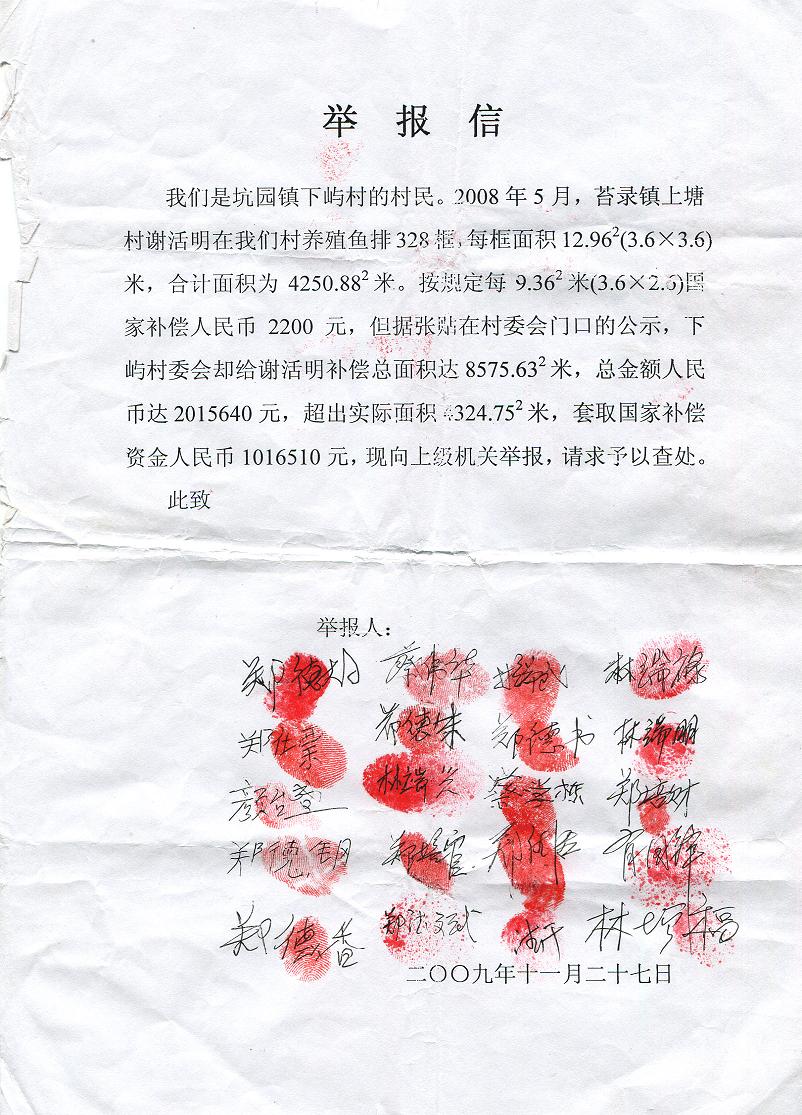 举报信
我们是坑园镇下屿村的村民。2008年5月，苔录镇上塘
村谢活明在我们村养殖鱼排328框，每框面积12.96²(3.6×3.6)
米，合计面积为 4250.88²米。按规定每 9.36²米(3.6×2.6)国
家补偿人民币 2200 元，但据张贴在村委会门口的公示，下
屿村委会却给谢活明补偿总面积达 8575.63²米，总金额人民
币达 2015640 元，超出实际面积 4324.75²米，套取国家补偿
资金人民币 1016510 元，现向上级机关举报，请求予以查处。
此致
举报人：
林瑞禄
郑德书 林瑞明
郑培财
郑德钢
郑德香 林增福
二〇〇九年十一月二十七日